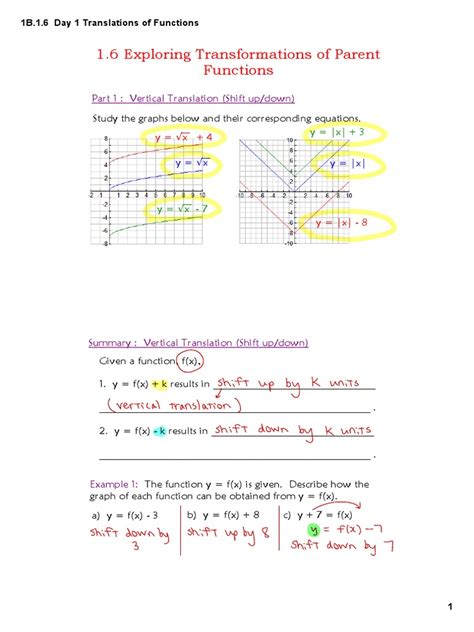 1B.1.6 Day 1 Translations of Functions
1.6 Exploring Transformations of Parent
Functions
Part 1 : Vertical Translation (Shift up/down)
Study the graphs below and their corresponding equations.
y = √x + 4
y = √x
y = √x - 7
8
6
4
2
-2 -1 1 2 3 4 5 6 7 8 9 10
-2
-4
-6
-8
y = |x| + 3
y = |x|
y = |x| - 8
10
8
6
4
2
-10 -8 -6 -4 -2 2 4 6 8 10
-2
-4
-6
-8
-10
Summary : Vertical Translation (Shift up/down)
Given a function f(x),
1. y = f(x) + k results in shift up by K units
(vertical translation) .
2. y = f(x) - k results in shift down by K units
.
Example 1: The function y = f(x) is given. Describe how the
graph of each function can be obtained from y = f(x).
a) y = f(x) - 3 b) y = f(x) + 8 c) y + 7 = f(x)
shift down by 3
shift up by 8
y = f(x) - 7
shift down by 7
1